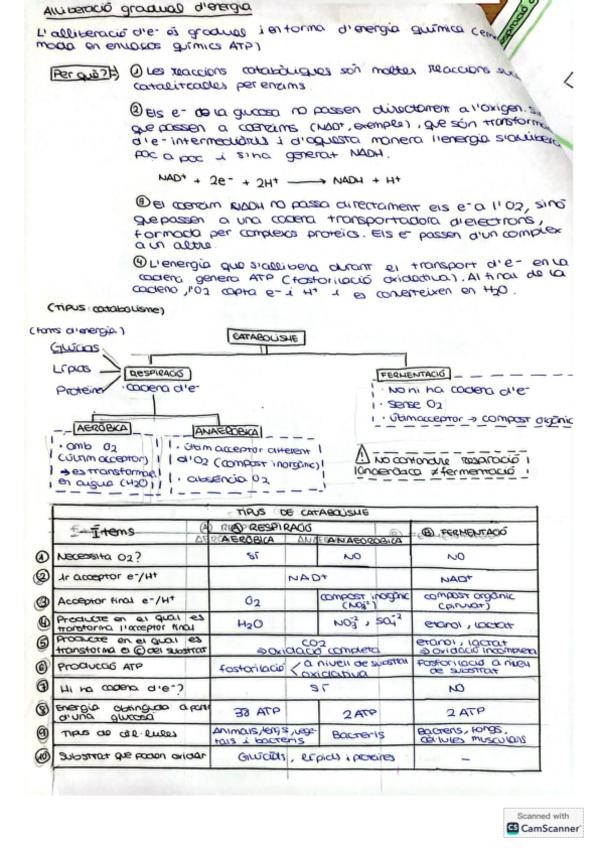 Alliberació gradual d'energia
L'alliberació d'e- és gradual i en forma d'energia química (em
moda en enllaços químics ATP)
Per què?
① Les reaccions catabòliques són moltes reaccions su
catalitzades per enzims.
② Els e- de la glucosa no passen directament a l'oxigen. Si
que passen a coenzims (NAD+, exemple), que són transforma
d'e- intermediaris i d'aquesta manera l'energia s'allibera
poc a poc i s'ha generat NADH.
NAD+ + 2e- + 2H+ → NADH + H+
③ El coenzim NADH no passa directament els e- a l'O2, sinó
que passen a una cadena transportadora d'electrons,
formada per complexos proteics. Els e- passen d'un complex
a un altre.
④ L'energia que s'allibera durant el transport d'e- en la
cadena genera ATP (fosforilació oxidativa). Al final de la
cadena, l'O2 capta e- i H+ i es converteixen en H2O.
(Tipus: catabolisme)
(fonts d'energia)
CATABOLISME
Glúcids
Lípids
Proteïnes
RESPIRACIÓ
· cadena d'e-
FERMENTACIÓ
· No hi ha cadena d'e-
· Sense O2
· Últim acceptor → compost orgànic
AERÒBICA
· amb O2
(últim acceptor)
→ es transforma
en aigua (H2O)
ANAERÒBICA
· Últim acceptor diferent
d'O2 (compost inorgànic)
· absència O2
⚠ No confondre respiració
anaeròbica ≠ fermentació
TIPUS DE CATABOLISME
Ítems
Ⓐ RESPIRACIÓ
Ⓑ FERMENTACIÓ
AERÒBICA ANAERÒBICA
① Necessita O2? SÍ NO NO
② 1r acceptor e-/H+ NAD+ NAD+
③ Acceptor final e-/H+ O2 compost inorgànic (NO3-) compost orgànic (piruvat)
④ Producte en el qual es transforma l'acceptor final H2O NO2-, SO4-2 etanol, lactat
⑤ Producte en el qual es transforma el C del substrat CO2 ⇒ oxidació completa etanol, lactat ⇒ oxidació incompleta
⑥ Producció ATP fosforilació < a nivell de substrat oxidativa fosforilació a nivell de substrat
⑦ Hi ha cadena d'e-? SÍ NO
⑧ Energia obtinguda a partir d'una glucosa 38 ATP 2 ATP 2 ATP
⑨ Tipus de cèl·lules Animals, fongs, vegetals i bacteris Bacteris Bacteris, fongs, cèl·lules musculars
⑩ Substrat que poden oxidar Glúcids, lípids i proteïnes –
Scanned with
CS CamScanner